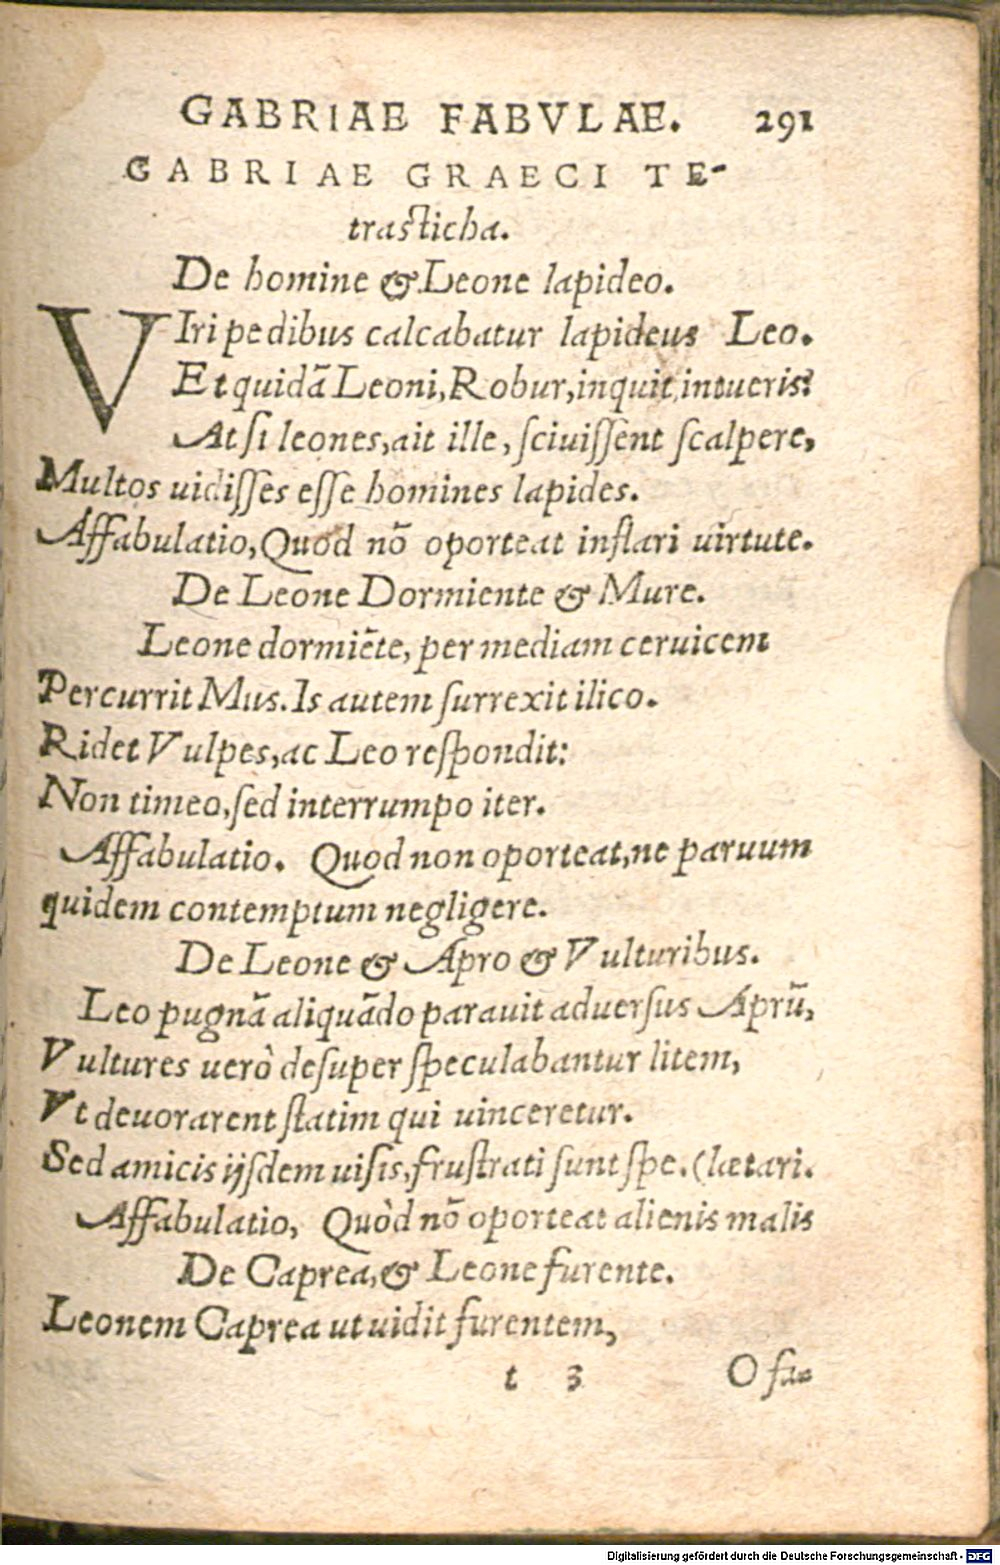 GABRIAE FABVLAE. 291
GABRIAE GRAECI TE-
trasticha.
De homine & Leone lapideo.
VIri pedibus calcabatur lapideus Leo.
Et quidā Leoni, Robur, inquit, intueris?
At si leones, ait ille, sciuissent scalpere,
Multos uidisses esse homines lapides.
Affabulatio, Quod nō oporteat inflari uirtute.
De Leone Dormiente & Mure.
Leone dormiēte, per mediam ceruicem
Percurrit Mus. Is autem surrexit ilico.
Ridet Vulpes, ac Leo respondit:
Non timeo, sed interrumpo iter.
Affabulatio. Quod non oporteat, ne paruum
quidem contemptum negligere.
De Leone & Apro & Vulturibus.
Leo pugnā aliquādo parauit aduersus Aprū,
Vultures uerò desuper speculabantur litem,
Vt deuorarent statim qui uinceretur.
Sed amicis ijsdem uisis, frustrati sunt spe. (lætari.
Affabulatio, Quòd nō oporteat alienis malis
De Caprea, & Leone furente.
Leonem Caprea ut uidit furentem,
t 3 O fa-
Digitalisierung gefördert durch die Deutsche Forschungsgemeinschaft - DFG